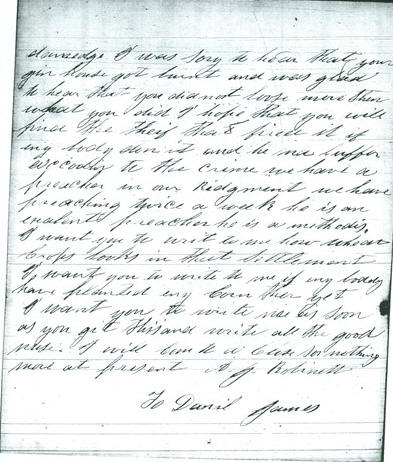 I was sory to hear that your
gin house got burnt and was glad
to hear that you did not loose more then
what you did I hope that you will
find the theif that
any body den it and he ma suffer
to the crime we have a
preacher in our Ridgment we have
preaching twice a week he is an
exelent preacher he is a methodis,
I want you to write to me how whear
Crops looks in that Settlement
I want you to write to me if any boddy
have planted any Corn ther yet
I want you to write me as soon
as you get this and write all the good
nuse. I will to a Close for nothing
more at present A J Robinett
To Danil James